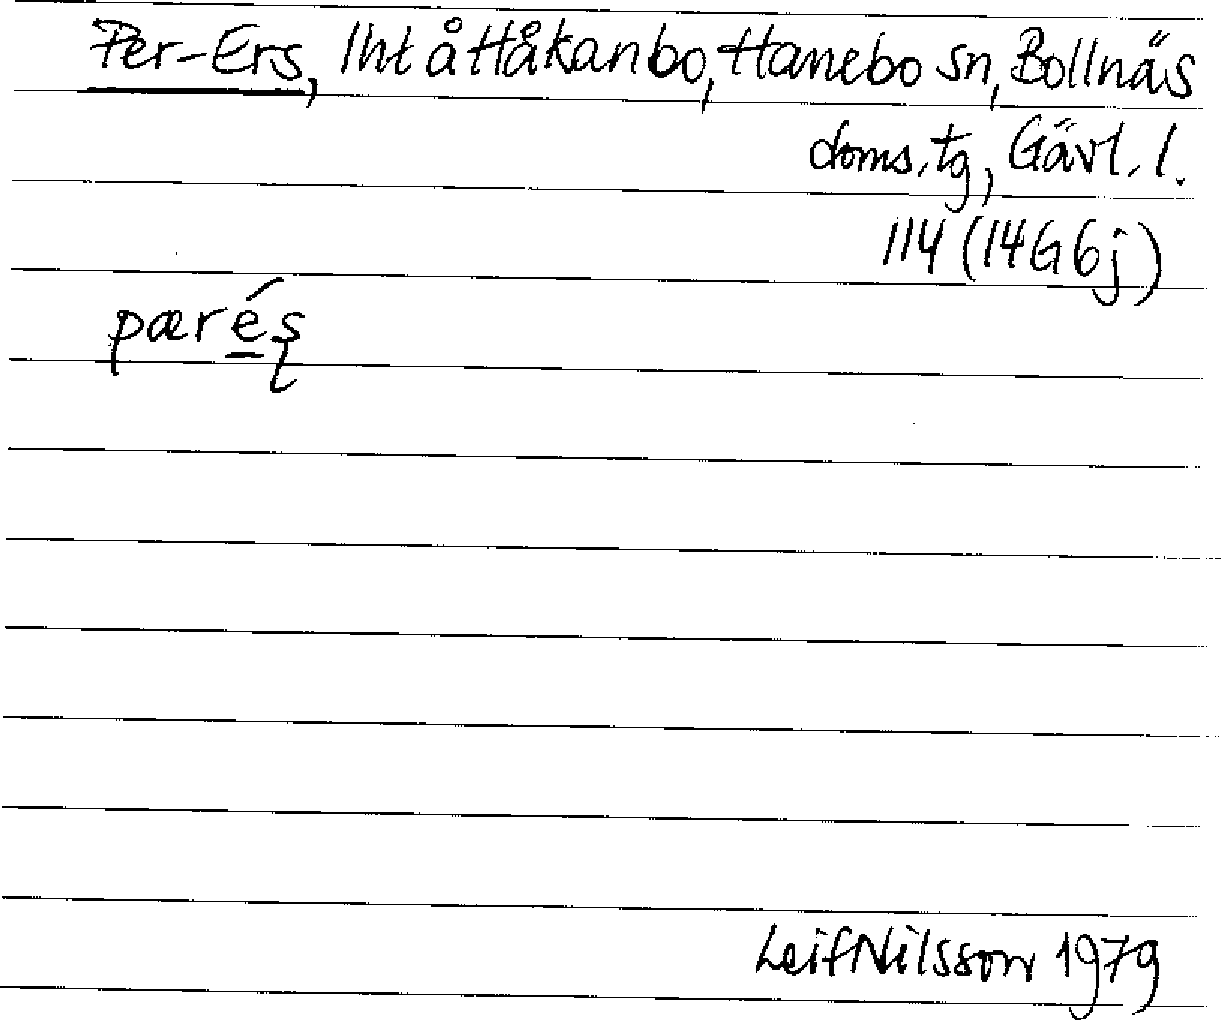 Per-Ers, lht å Håkanbo, Hanebo sn, Bollnäs
doms.tg, Gävl. l.
114 (14G6j)
pæréʂ
Leif Nilsson 1979